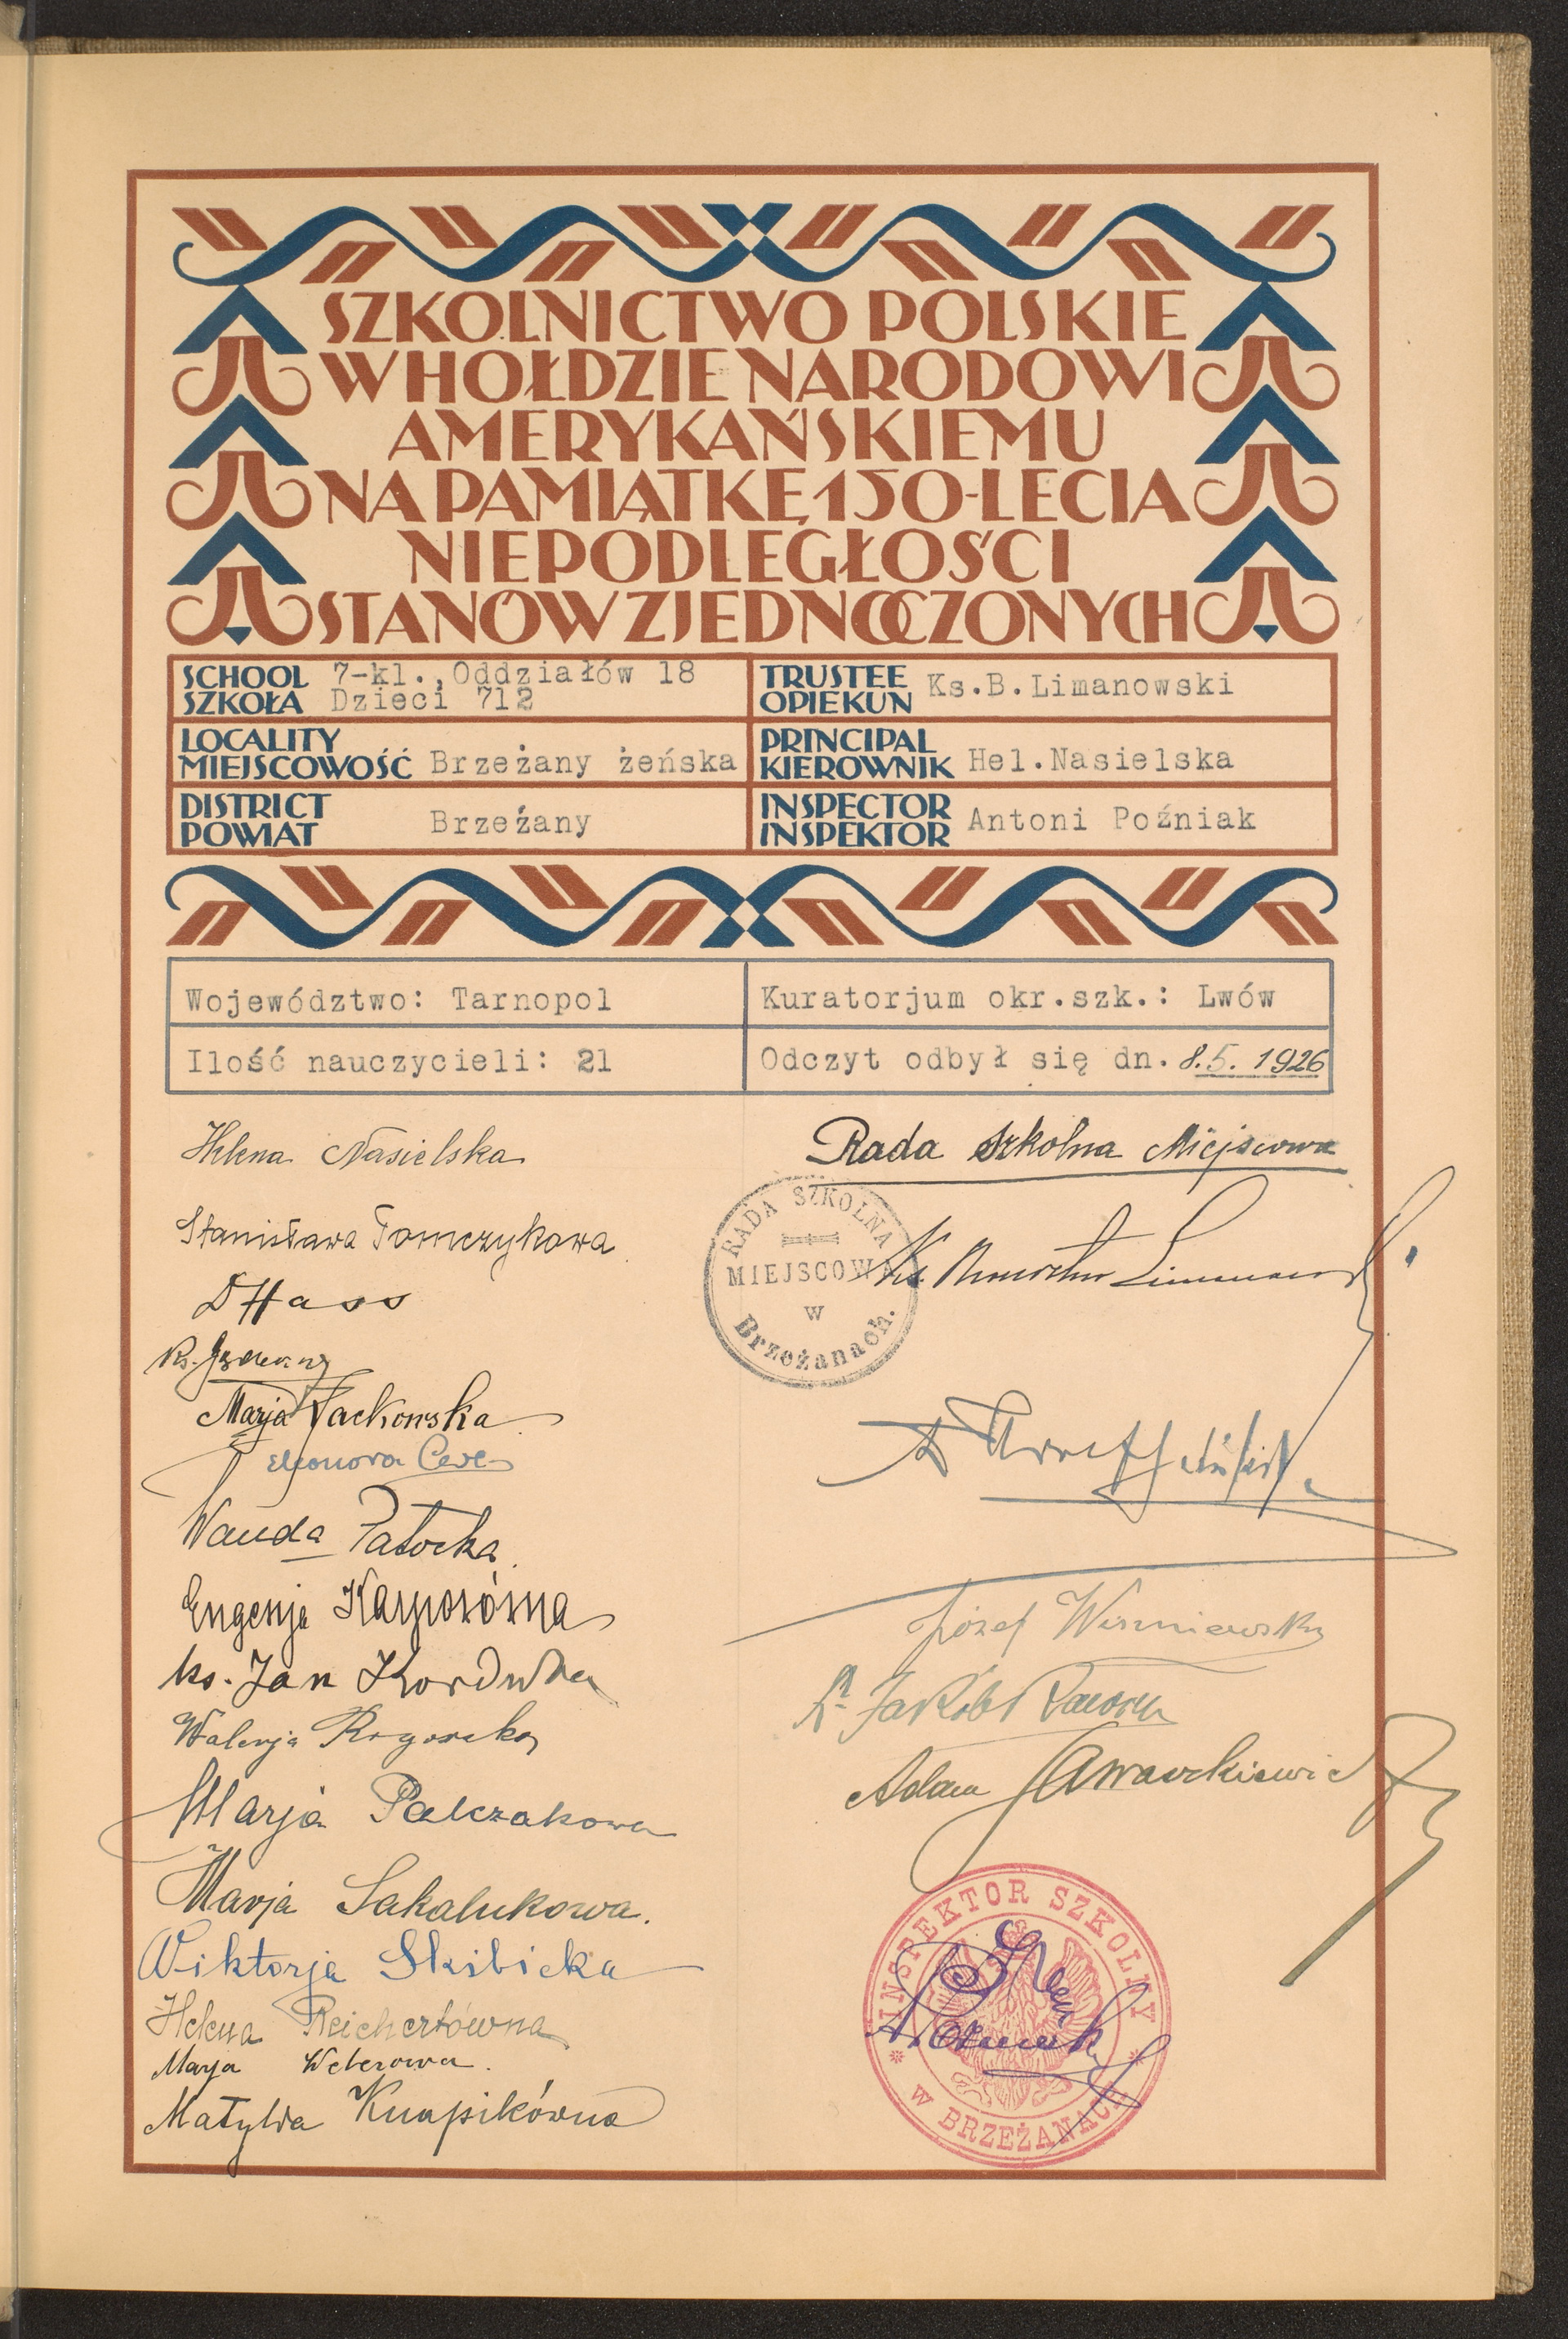 SZKOLNICTWO POLSKIE
W HOŁDZIE NARODOWI
AMERYKAŃSKIEMU
NA PAMIĄTKĘ 150-LECIA
NIEPODLEGŁOŚCI
STANÓW ZJEDNOCZONYCH
SCHOOL 7-kl., Oddziałów 18
SZKOŁA Dzieci 712
TRUSTEE
OPIEKUN Ks.B.Limanowski
LOCALITY
MIEJSCOWOŚĆ Brzeżany żeńska
PRINCIPAL
KIEROWNIK Hel.Nasielska
DISTRICT
POWIAT Brzeżany
INSPECTOR
INSPEKTOR Antoni Poźniak
Województwo: Tarnopol
Kuratorjum okr.szk.: Lwów
Ilość nauczycieli: 21
Odczyt odbył się dn. 8.5. 1926
Helena Nasielska
Stanisława Tomczykowa
DHass
Ks.
Marja Jackowska
Eleonora
Wanda Patocka
Eugenja Karpowówna
ks. Jan Korduba
Walerja Rogowska
Marja Palczakowa
Marja Sakalukowa.
Wiktorja Skibicka
Helena Reichertówna
Marja Weberowa.
Matylda Knapikówna
Rada Szkolna Miejscowa
RADA SZKOLNA
MIEJSCOWA
w
Brzeżanach.
Ks. Bronisław Limanowski
Józef Wiszniewski
Jakób
Adam
INSPEKTOR SZKOLNY
W BRZEŻANACH